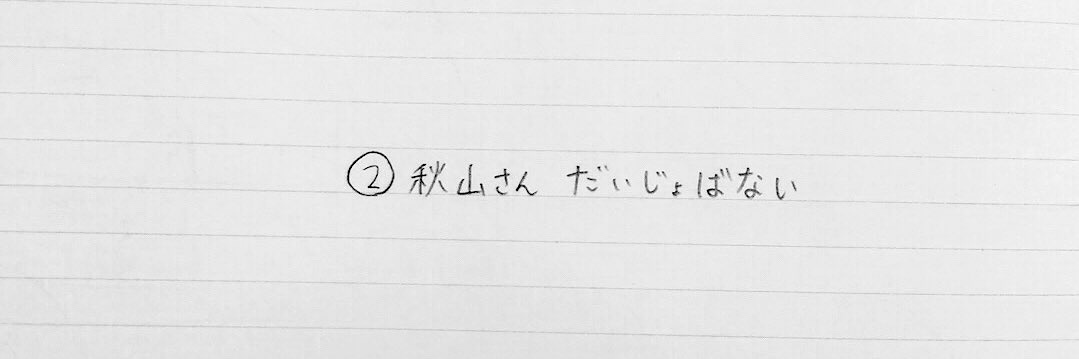 ②秋山さん だいじょばない